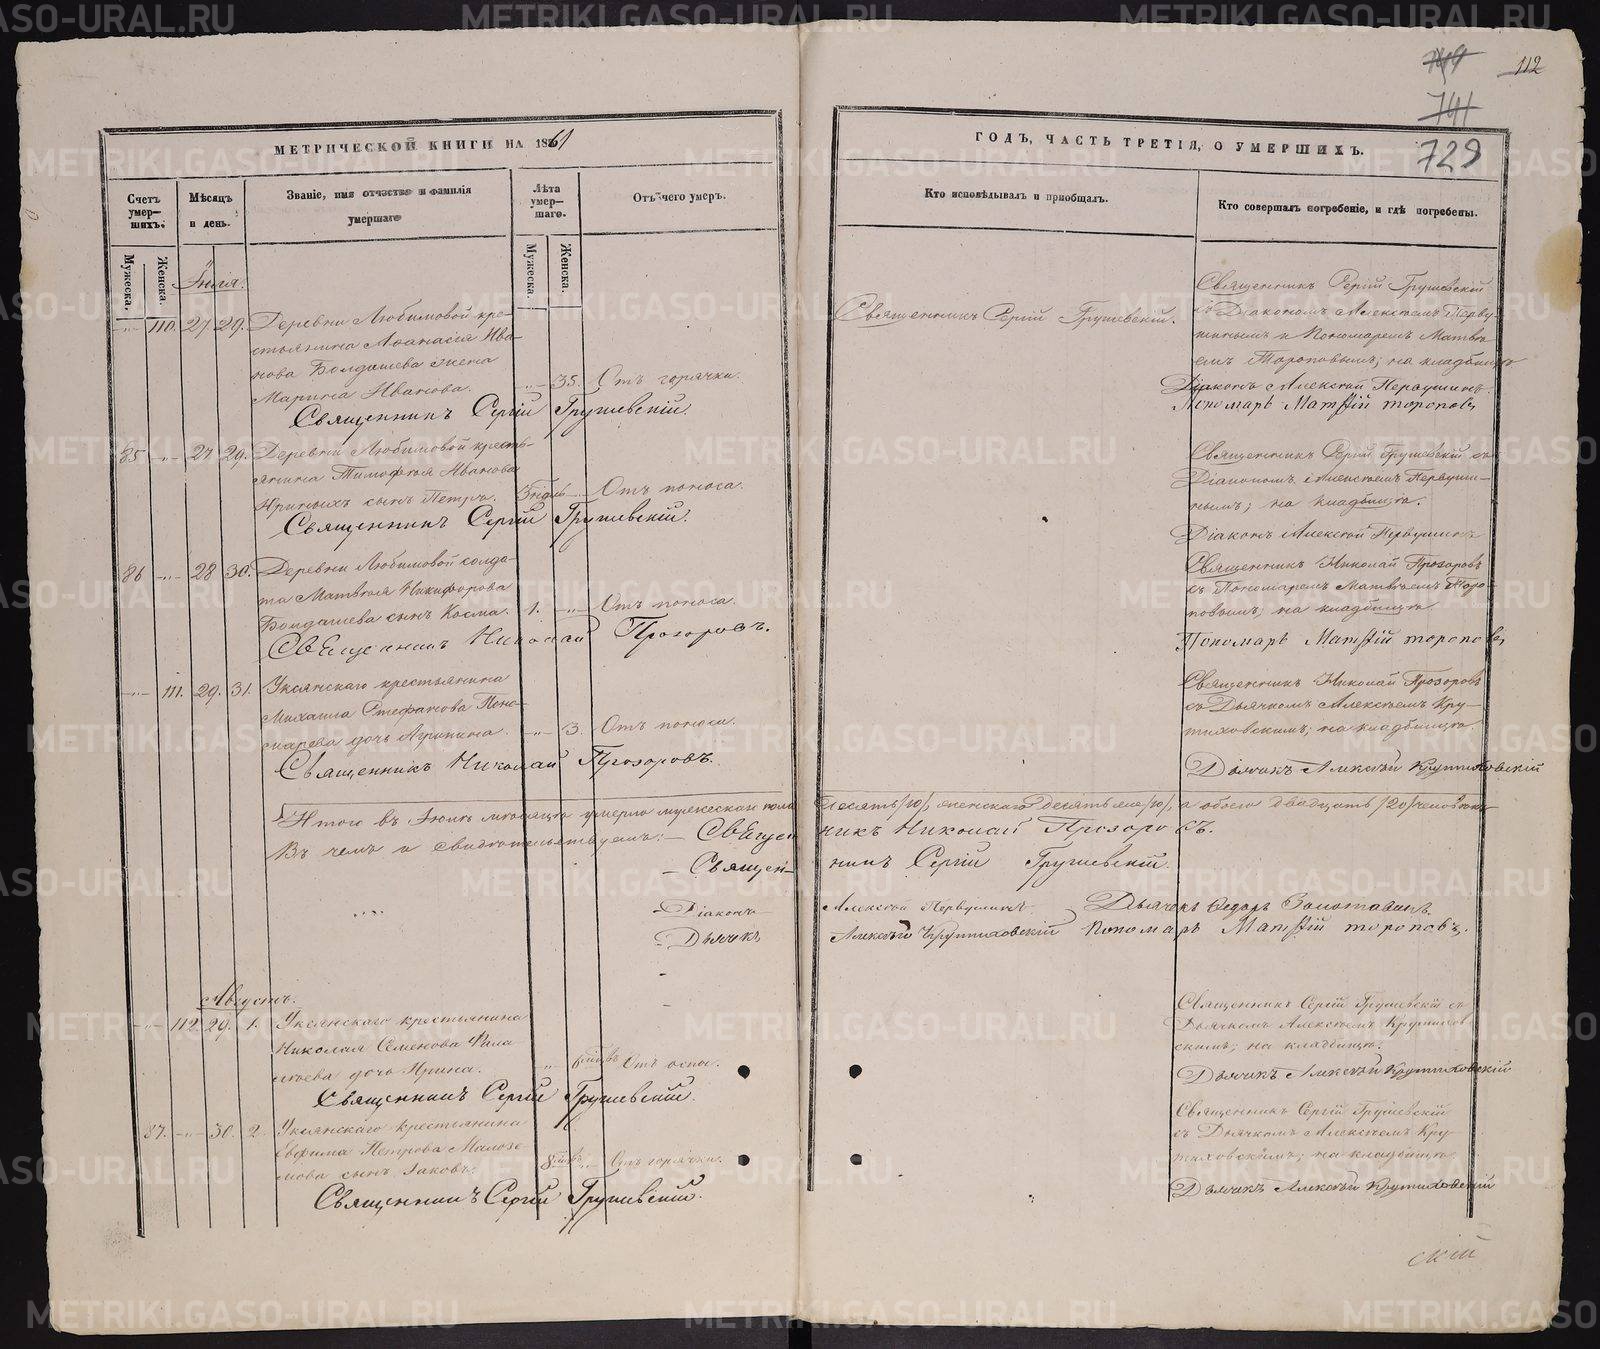 112
741
729
МЕТРИЧЕСКОЙ КНИГИ НА 1861
ГОДЪ, ЧАСТЬ ТРЕТІЯ, О УМЕРШИХЪ.
Счетъ умер-шихъ.
Мужеска.
Женска.
Мѣсяцъ и день.
Званіе, имя отчество и фамилія умершаго
Лѣта умер-шаго.
Мужеска.
Женска.
Отъ чего умеръ.
Кто исповѣдывалъ и пріобщалъ.
Кто совершалъ погребеніе, и гдѣ погребены.
Іюля.
110. 27. 29. Деревни Любимовой кре-
стьянина Аѳанасія Ива-
нова Болдашева жена
Марина Иванова. 35. Отъ горячки.
Священникъ Сергій Грушевскій.
Священникъ Сергій Грушевскій.
Священникъ Сергій Грушевскій
съ Діакономъ Алексѣемъ Перву-
шинымъ и Пономаремъ Матвѣ-
емъ Тороповымъ; на кладбищѣ
Діаконъ Алексѣй Первушинъ.
Пономарь Матѳій Тороповъ
85 27 29. Деревни Любимовой кресть-
янина Тимоѳея Иванова
сынъ Петръ. 3 недѣль Отъ поноса.
Священникъ Сергій Грушевскій.
Священникъ Сергій Грушевскій съ
Діакономъ Алексѣемъ Первуши-
нымъ; на кладбищѣ.
Діаконъ Алексѣй Первушинъ
86 28 30. Деревни Любимовой солда-
та Матвѣя Никифорова
Болдашева сынъ Косма. 1. Отъ поноса.
Священникъ Николай Прозоровъ.
Священникъ Николай Прозоровъ
съ Пономаремъ Матвѣемъ Торо-
повымъ; на кладбищѣ.
Пономарь Матѳій Тороповъ
111. 29. 31. Уксянскаго крестьянина
Михаила Стефанова Поно-
марева дочь Агрипина. 3. Отъ поноса.
Священникъ Николай Прозоровъ.
Священникъ Николай Прозоровъ
съ Дьячкомъ Алексѣемъ Кру-
тиховскимъ; на кладбищѣ.
Дьячекъ Алексѣй Крутиховскій
Итого въ Іюлѣ мѣсяцѣ умерло мужескаго пола десять /10/, женскаго десять же /10/, а обоего двадцать /20/ человѣкъ
Въ чемъ и свидѣтельствуемъ: Священникъ Николай Прозоровъ.
Священникъ Сергій Грушевскій.
Діаконъ Алексѣй Первушинъ. Дьячекъ Ѳедоръ
Дьячекъ Алексѣй Крутиховскій Пономарь Матѳій Тороповъ.
Августъ.
112. 29. 1. Уксянскаго крестьянина
Николая Семенова Фила
тьева дочь Ирина. 6 мѣсц. Отъ оспы.
Священникъ Сергій Грушевскій.
Священникъ Сергій Грушевскій съ
Дьячкомъ Алексѣемъ Крутихов
скимъ; на кладбищѣ.
Дьячекъ Алексѣй Крутиховскій
87. 30. 2. Уксянскаго крестьянина
Евфима Петрова Малозе
мова сынъ Іаковъ. 8 мѣсц. Отъ горячки.
Священникъ Сергій Грушевскій.
Священникъ Сергій Грушевскій
съ Дьячкомъ Алексѣемъ Кру-
тиховскимъ; на кладбищѣ.
Дьячекъ Алексѣй Крутиховскій
скій
METRIKI.GASO-URAL.RU